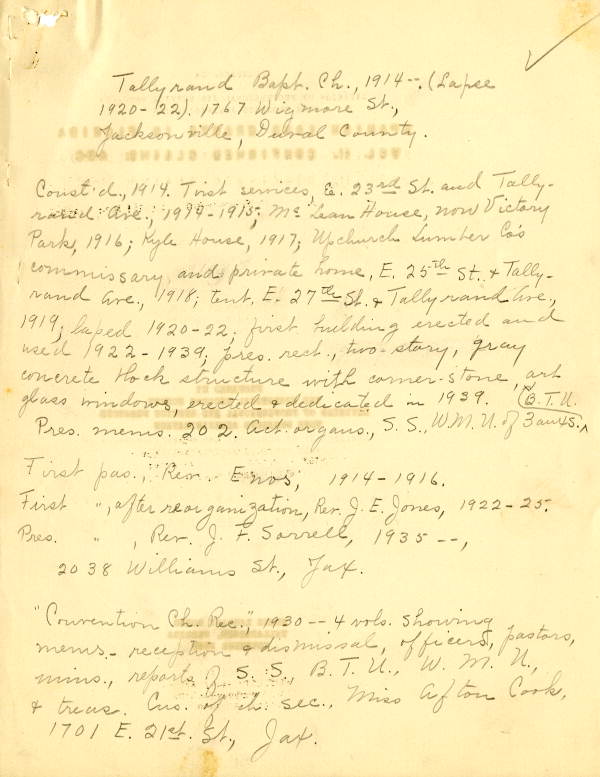 Tallyrand Bapt. Ch., 1914--. (Lapse
1920-22). 1767 Wigmore St.,
Jacksonville, Duval County.
Const'd., 1914. First services, E. 23rd St. and Tally-
rand Ave., 1914-1915; McLean House, now Victory
Park, 1916; Kyle House, 1917; Upchurch Lumber Co's
commissary and private home, E. 25th St. & Tally-
rand Ave., 1918; tent, E. 27th St. & Tallyrand Ave.,
1919; lapsed 1920-22; first building erected and
used 1922-1939; pres. rect., two-story, gray
concrete block structure with corner-stone, art
glass windows, erected & dedicated in 1939. (B.T.U.
Pres. mems. 202. Act. organs., S.S., W.M.U. of
First pas., Rev. Enos, 1914-1916.
First ", after reorganization, Rev. J. E. Jones, 1922-25.
Pres. ", Rev. J. F. Sorrell, 1935--,
2038 Williams St., Jax.
"Convention Ch. Rec.", 1930-- 4 vols. showing
mems.- reception & dismissal, officers, pastors,
mins., reports of S.S., B.T.U., W.M.U.,
& treas. Cus. of ch. sec., Miss Afton Cook,
1701 E. 21st. St., Jax.